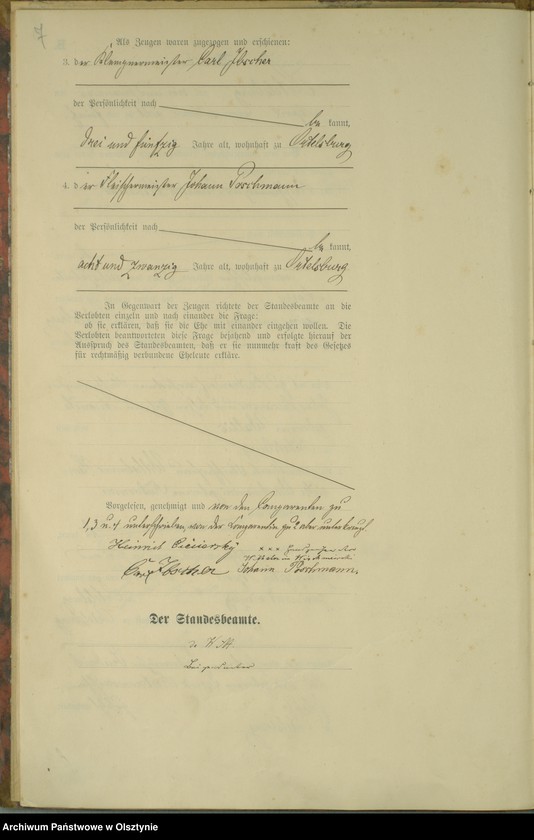 7
Als Zeugen waren zugezogen und erschienen:
3. der Klempnermeister Carl Ibscher
der Persönlichkeit nach
be kannt,
drei und fünfzig Jahre alt, wohnhaft zu Ortelsburg
4. der Fleischermeister Johann Poschmann
der Persönlichkeit nach
be kannt,
acht und zwanzig Jahre alt, wohnhaft zu Ortelsburg
In Gegenwart der Zeugen richtete der Standesbeamte an die
Verlobten einzeln und nach einander die Frage:
ob sie erklären, daß sie die Ehe mit einander eingehen wollen. Die
Verlobten beantworteten diese Frage bejahend und erfolgte hierauf der
Ausspruch des Standesbeamten, daß er sie nunmehr kraft des Gesetzes
für rechtmäßig verbundene Eheleute erkläre.
Vorgelesen, genehmigt und von den Comparenten zu
1, 3 u. 4 unterschrieben, von der Comparentin zu 2 aber unterkreuzt.
Heinrich
xxx Handzeichen der
Carl Ibscher Johann Poschmann.
Der Standesbeamte.
Archiwum Państwowe w Olsztynie